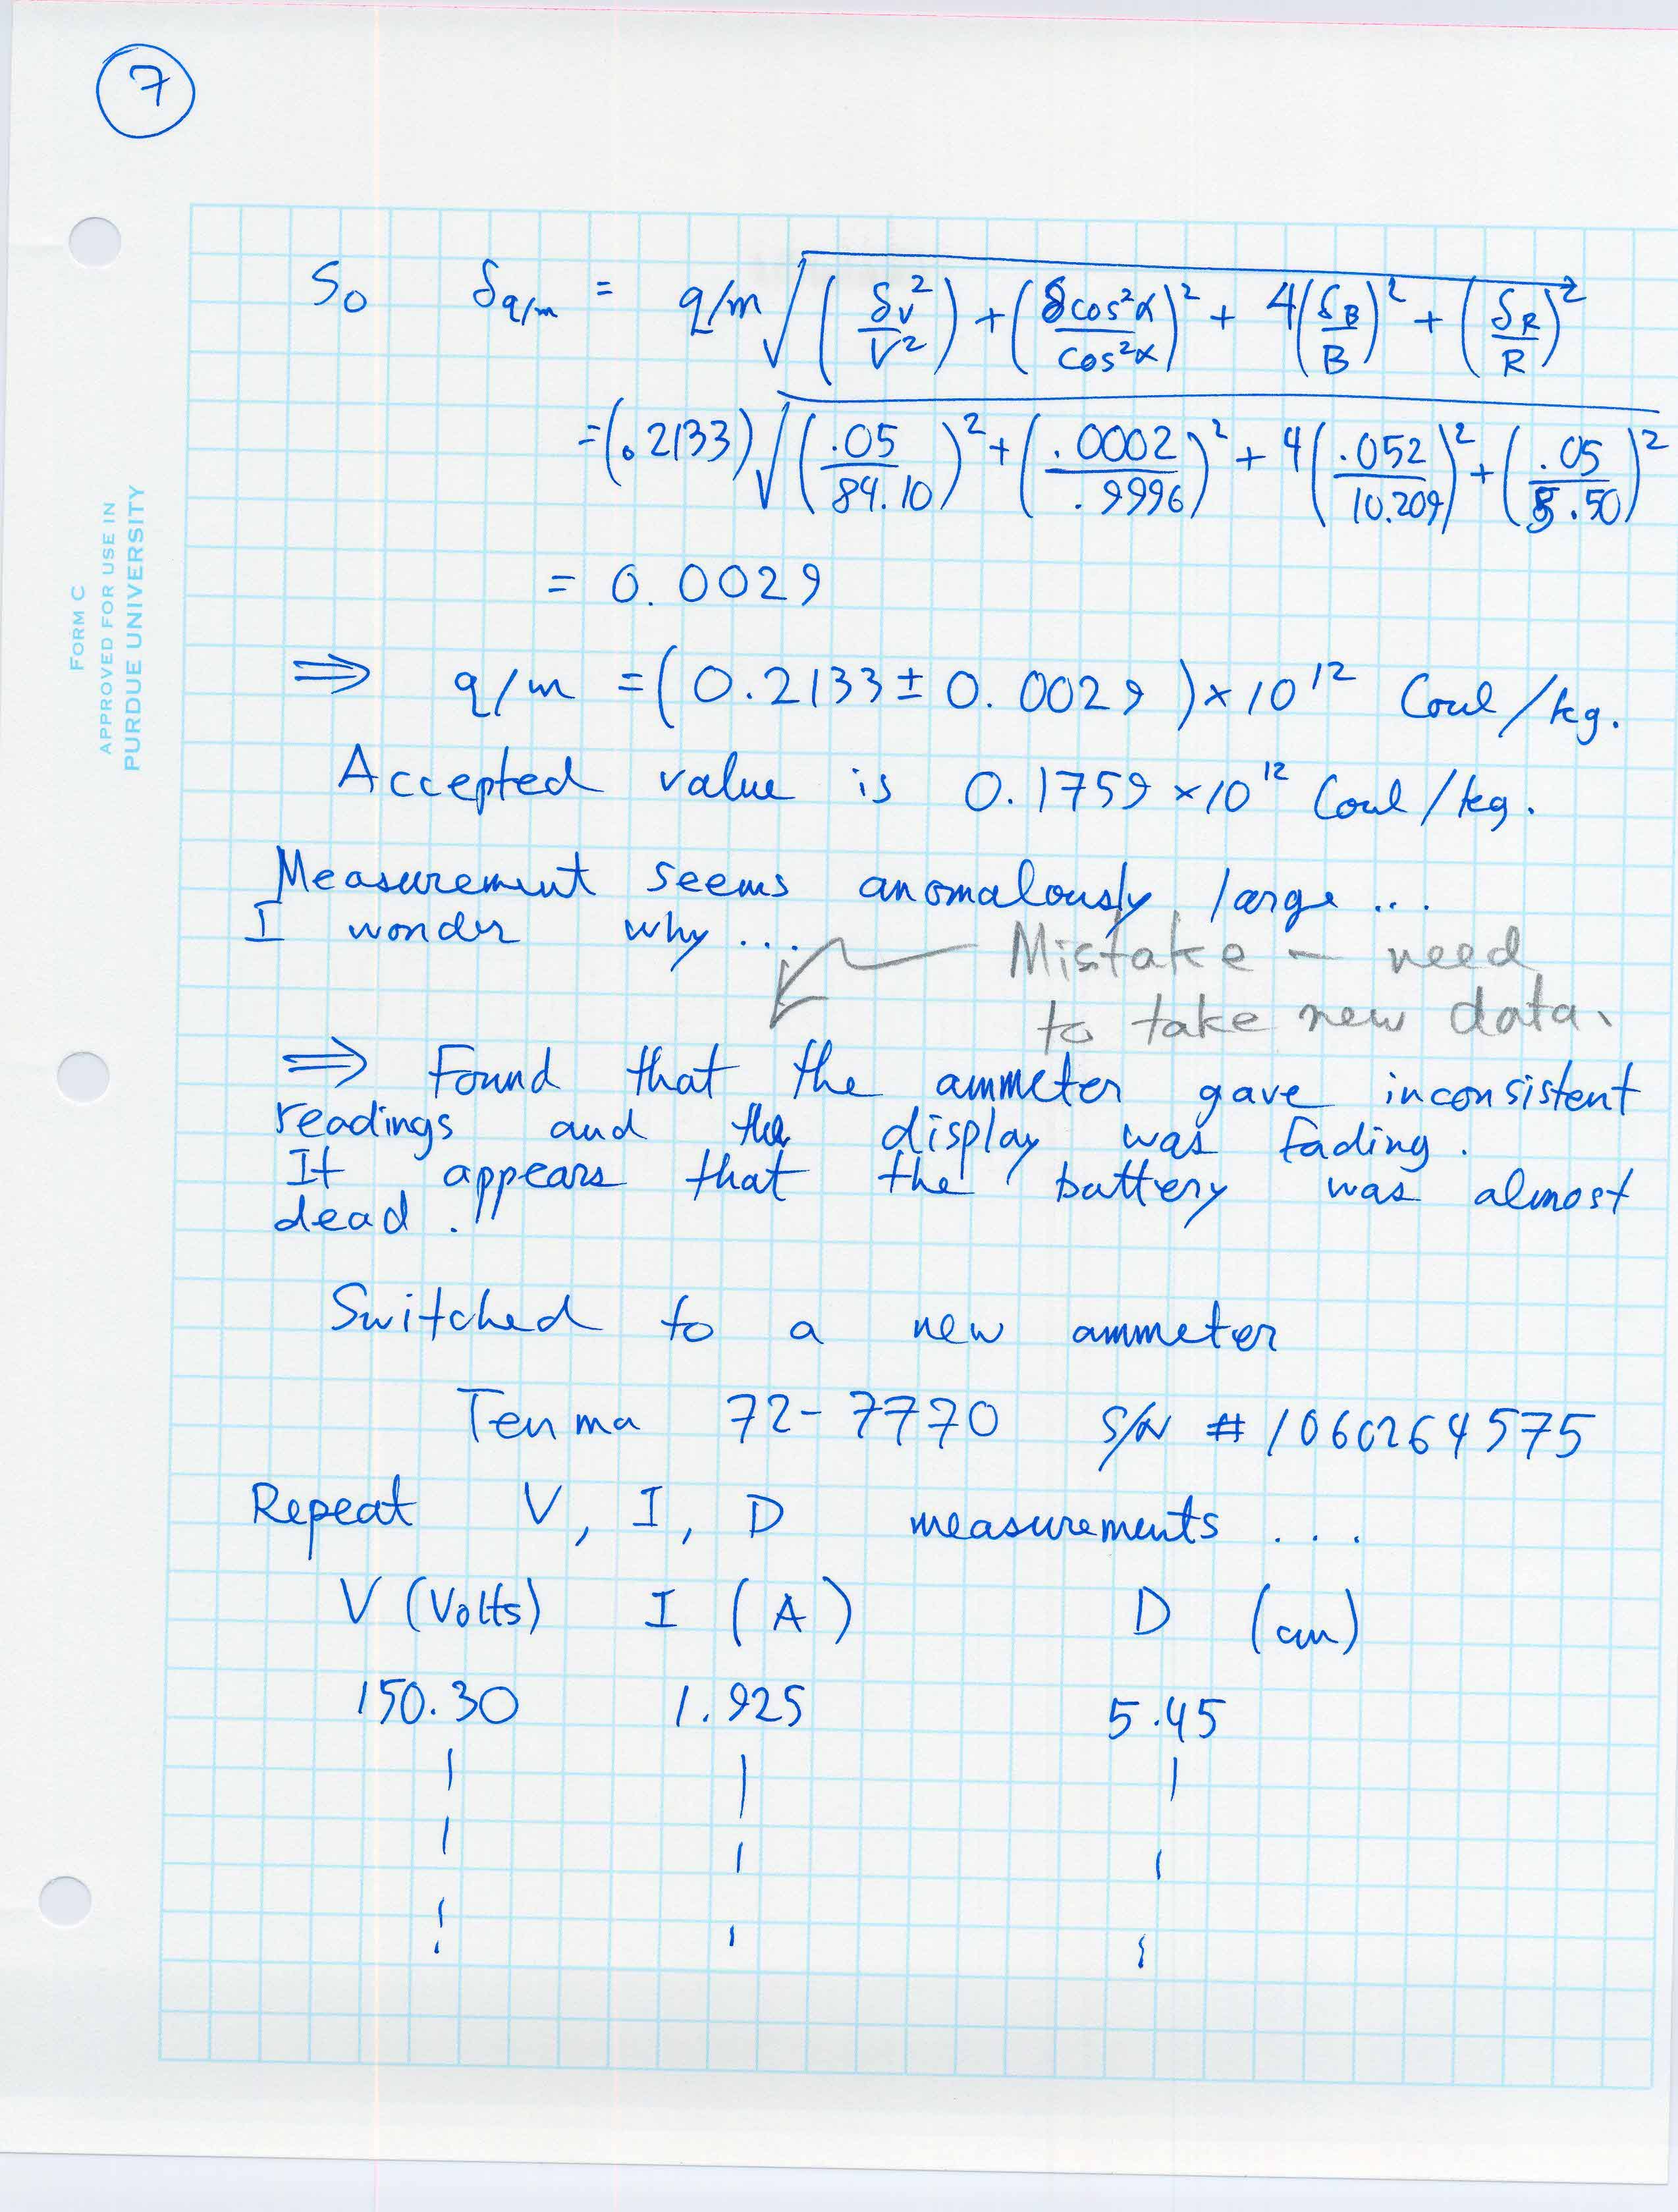 7
So δq/m = q/m √( (δv²/V²) + (δcos²α/cos²α)² + 4(δB/B)² + (δR/R)² )
=(.2133) √( (.05/84.10)² + (.0002/.9996)² + 4(.052/10.209)² + (.05/5.50)² )
= 0.0029
⇒ q/m = (0.2133 ± 0.0029) × 10¹² Coul/kg.
Accepted value is 0.1759 × 10¹² Coul/kg.
Measurement seems anomalously large ...
I wonder why ...
Mistake – need
to take new data.
⇒ Found that the ammeter gave inconsistent
readings and the display was fading.
It appears that the battery was almost
dead.
Switched to a new ammeter
Tenma 72-7770 S/N #1060264575
Repeat V, I, D measurements ...
V (Volts) I (A) D (cm)
150.30 1.925 5.45
FORM C
APPROVED FOR USE IN
PURDUE UNIVERSITY